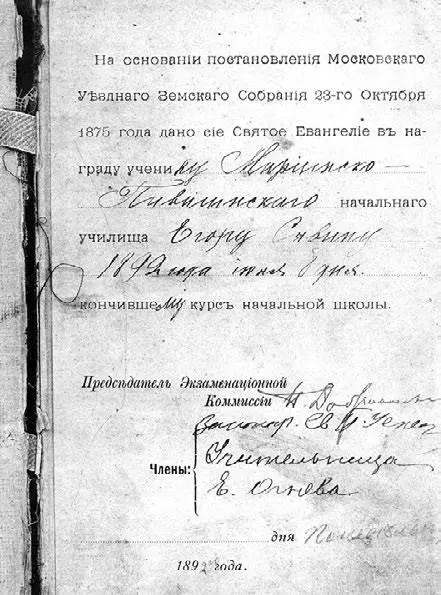 На основаніи постановленія Московскаго
Уѣзднаго Земскаго Собранія 23-го Октября
1875 года дано сіе Святое Евангеліе въ на-
граду ученику Маріинско-
начальнаго
училища Егору Савину
1892 года іюня 8 дня.
кончившему курсъ начальной школы.
Предсѣдатель Экзаменаціонной
Коммиссіи
Члены:
Учительница
Е. Огнева
дня
1892 года.